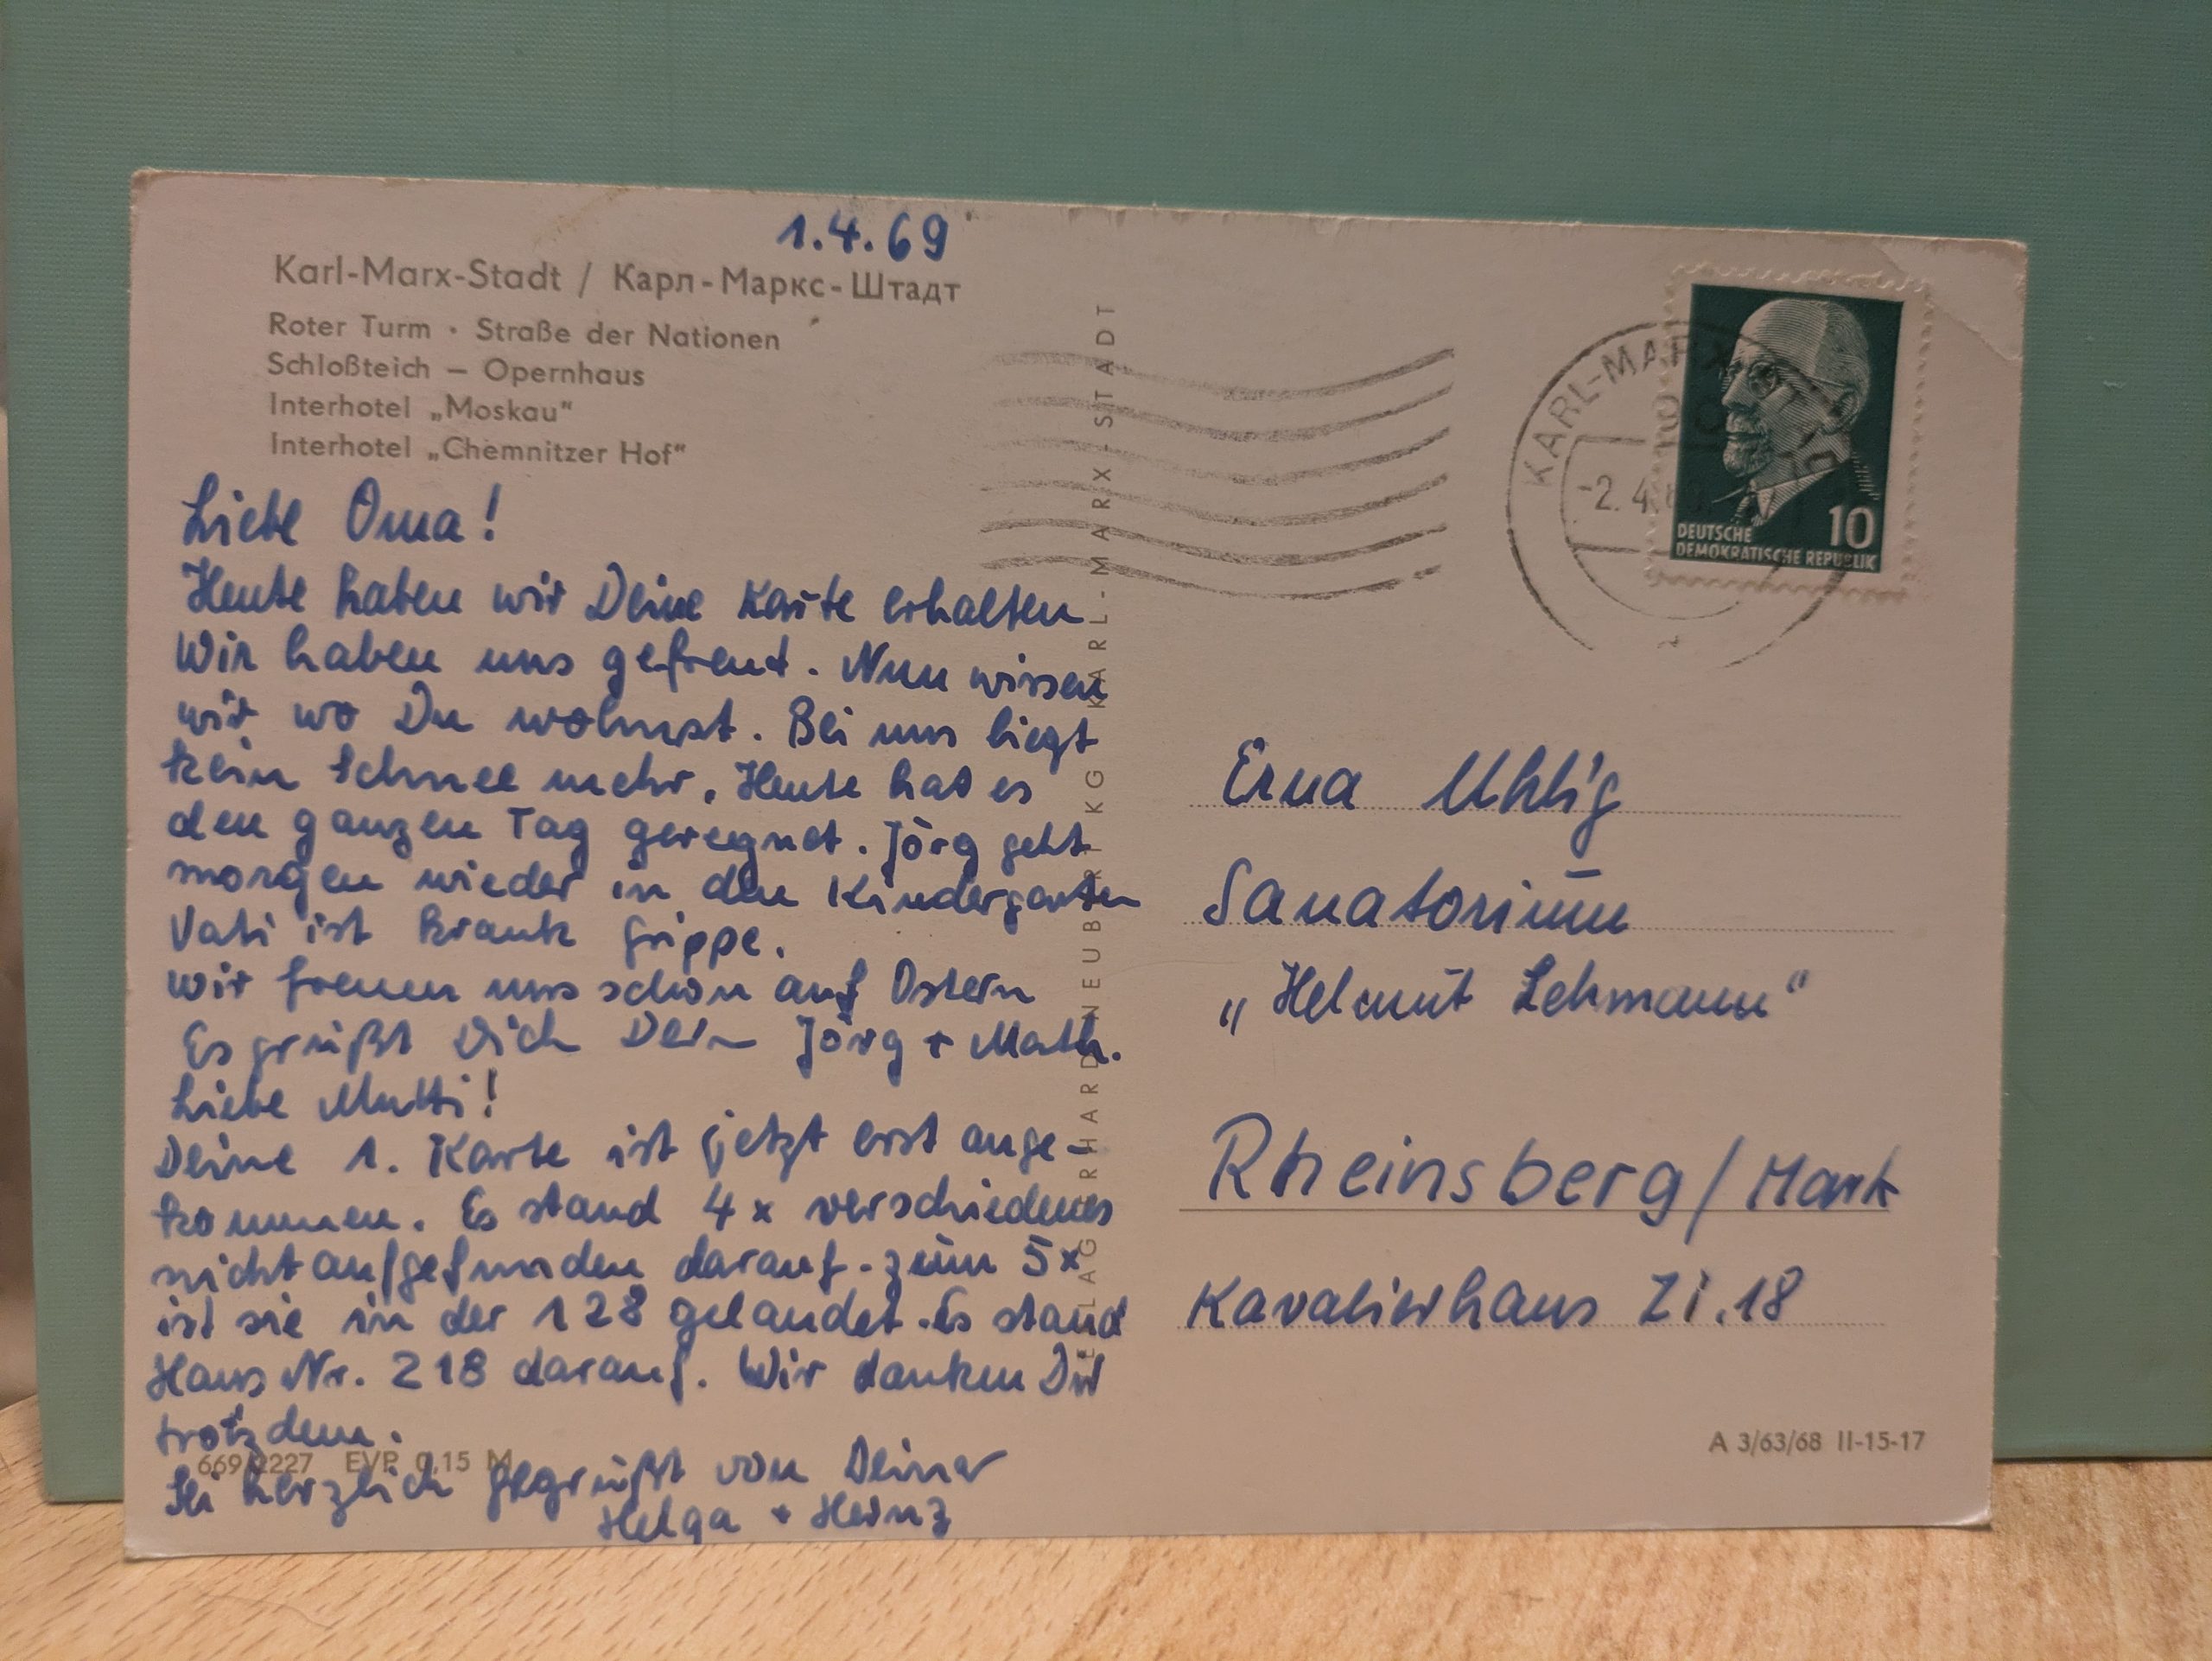 1.4.69
Karl-Marx-Stadt / Карл-Маркс-Штадт
Roter Turm · Straße der Nationen
Schloßteich – Opernhaus
Interhotel „Moskau“
Interhotel „Chemnitzer Hof“
Liebe Oma!
Heute haben wir Deine Karte erhalten
Wir haben uns gefreut. Nun wissen
wir wo Du wohnst. Bei uns liegt
kein Schnee mehr. Heute hat es
den ganzen Tag geregnet. Jörg geht
morgen wieder in den Kindergarten
Vati ist krank Grippe.
Wir freuen uns schon auf Ostern
Es grüßt Dich Dein Jörg + Math.
Liebe Mutti!
Deine 1. Karte ist jetzt erst ange-
kommen. Es stand 4x verschiedenes
nicht aufgefunden darauf. zum 5x
ist sie in der 128 gelandet. Es stand
Haus Nr. 218 darauf. Wir danken Dir
trotzdem.
669 2227 EVP 0,15 M
Sei herzlich gegrüßt von Deiner
Helga + Heinz
KARL-MARX-STADT
KARL-MARX
-2.4.
10
DEUTSCHE
DEMOKRATISCHE REPUBLIK
Erna Uhlig
Sanatorium
„Helmut Lehmann“
Rheinsberg/Mark
Kavalierhaus Zi.18
A 3/63/68 II-15-17